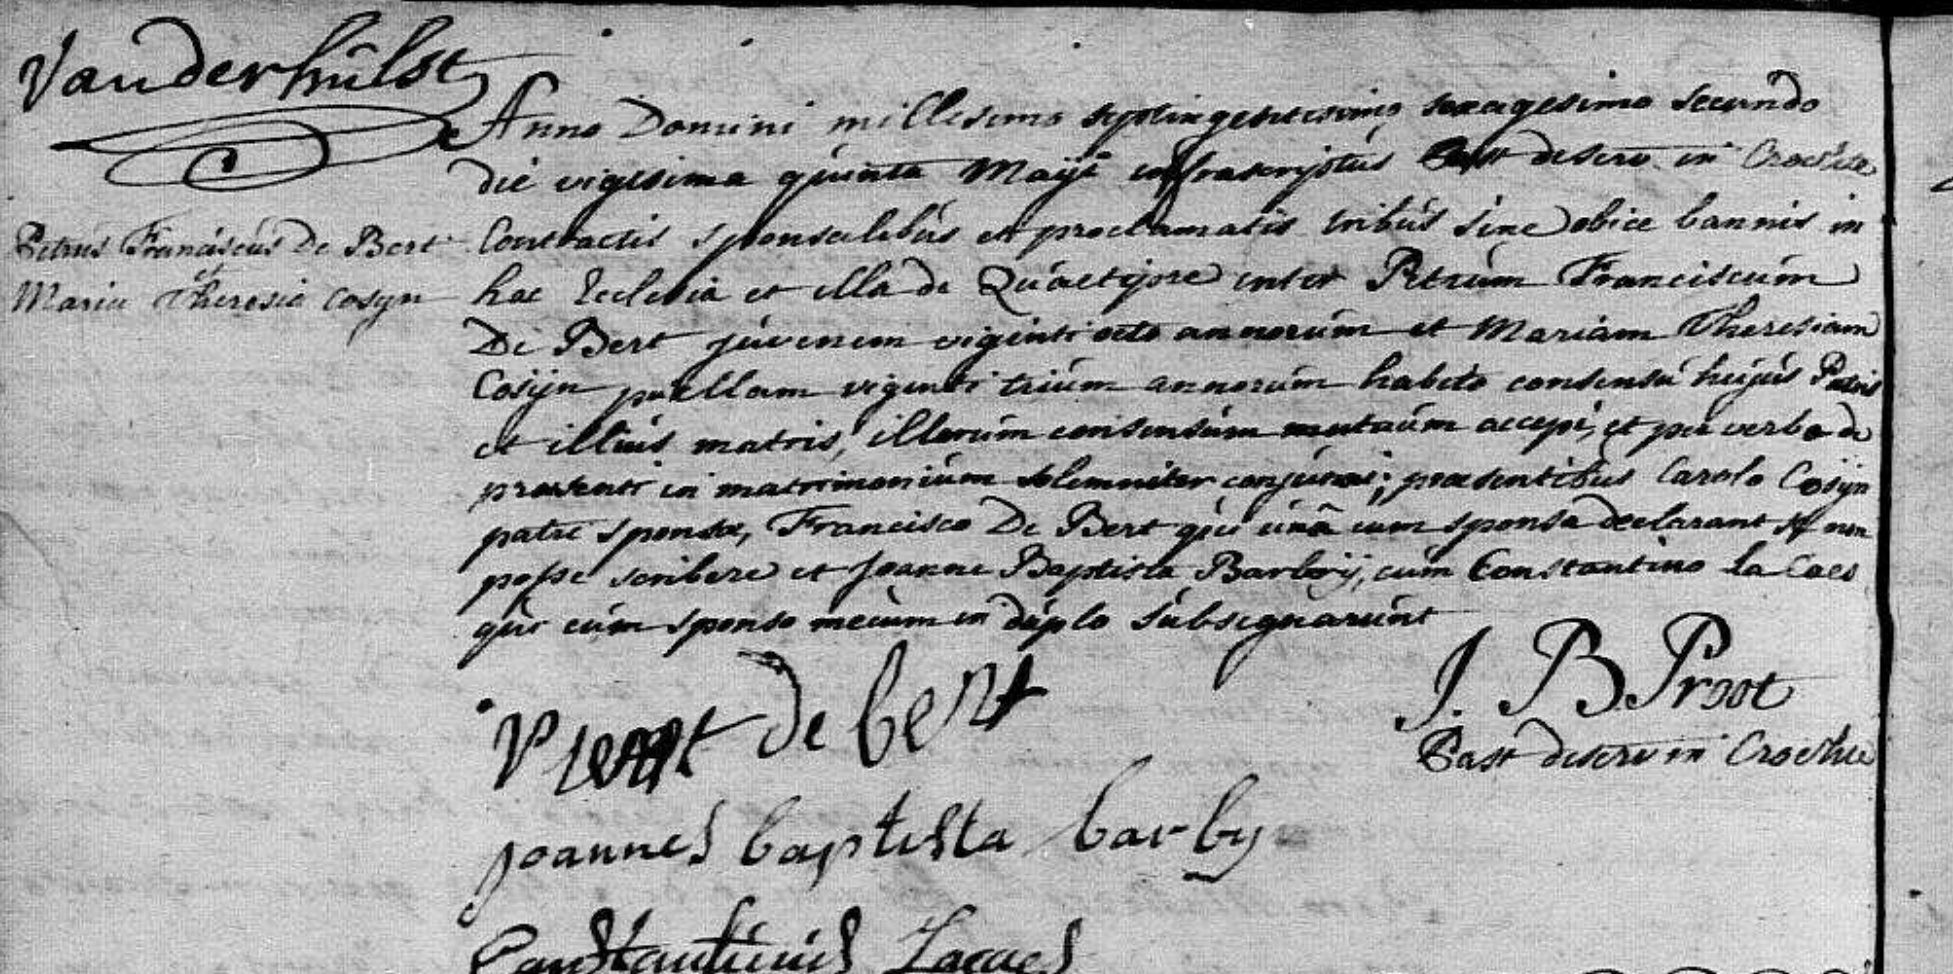 Vanderhulst
Petrus Franciscus De Bert
Maria Theresia Cosyn
Anno Domini millesimo septingentesimo sexagesimo secundo
die vigesima quinta Maÿi infrascriptus Past deserv in
Contractis sponsalibus et proclamatis tribus sine obice bannis in
hac Ecclesia et illa de Quaetijpre inter Petrum Franciscum
De Bert juvenem viginti octo annorum et Mariam Theresiam
Cosijn puellam viginti trium annorum habito consensu hujus Patris
et illius matris, illorum consensum mutuum accepi, et per verba de
praesenti in matrimonium solemniter conjunxi; praesentibus Carolo Cosijn
patre sponsae, Francisco De Bert qui unâ cum sponsa declarant se non
posse scribere et Joanne Baptista Barbij, cum Constantino La Caes
qui cum sponso mecum in duplo subsignarunt
J. B. Proot
Past deserv in
de bert
joannes baptista barby
Constantinus Lacaes